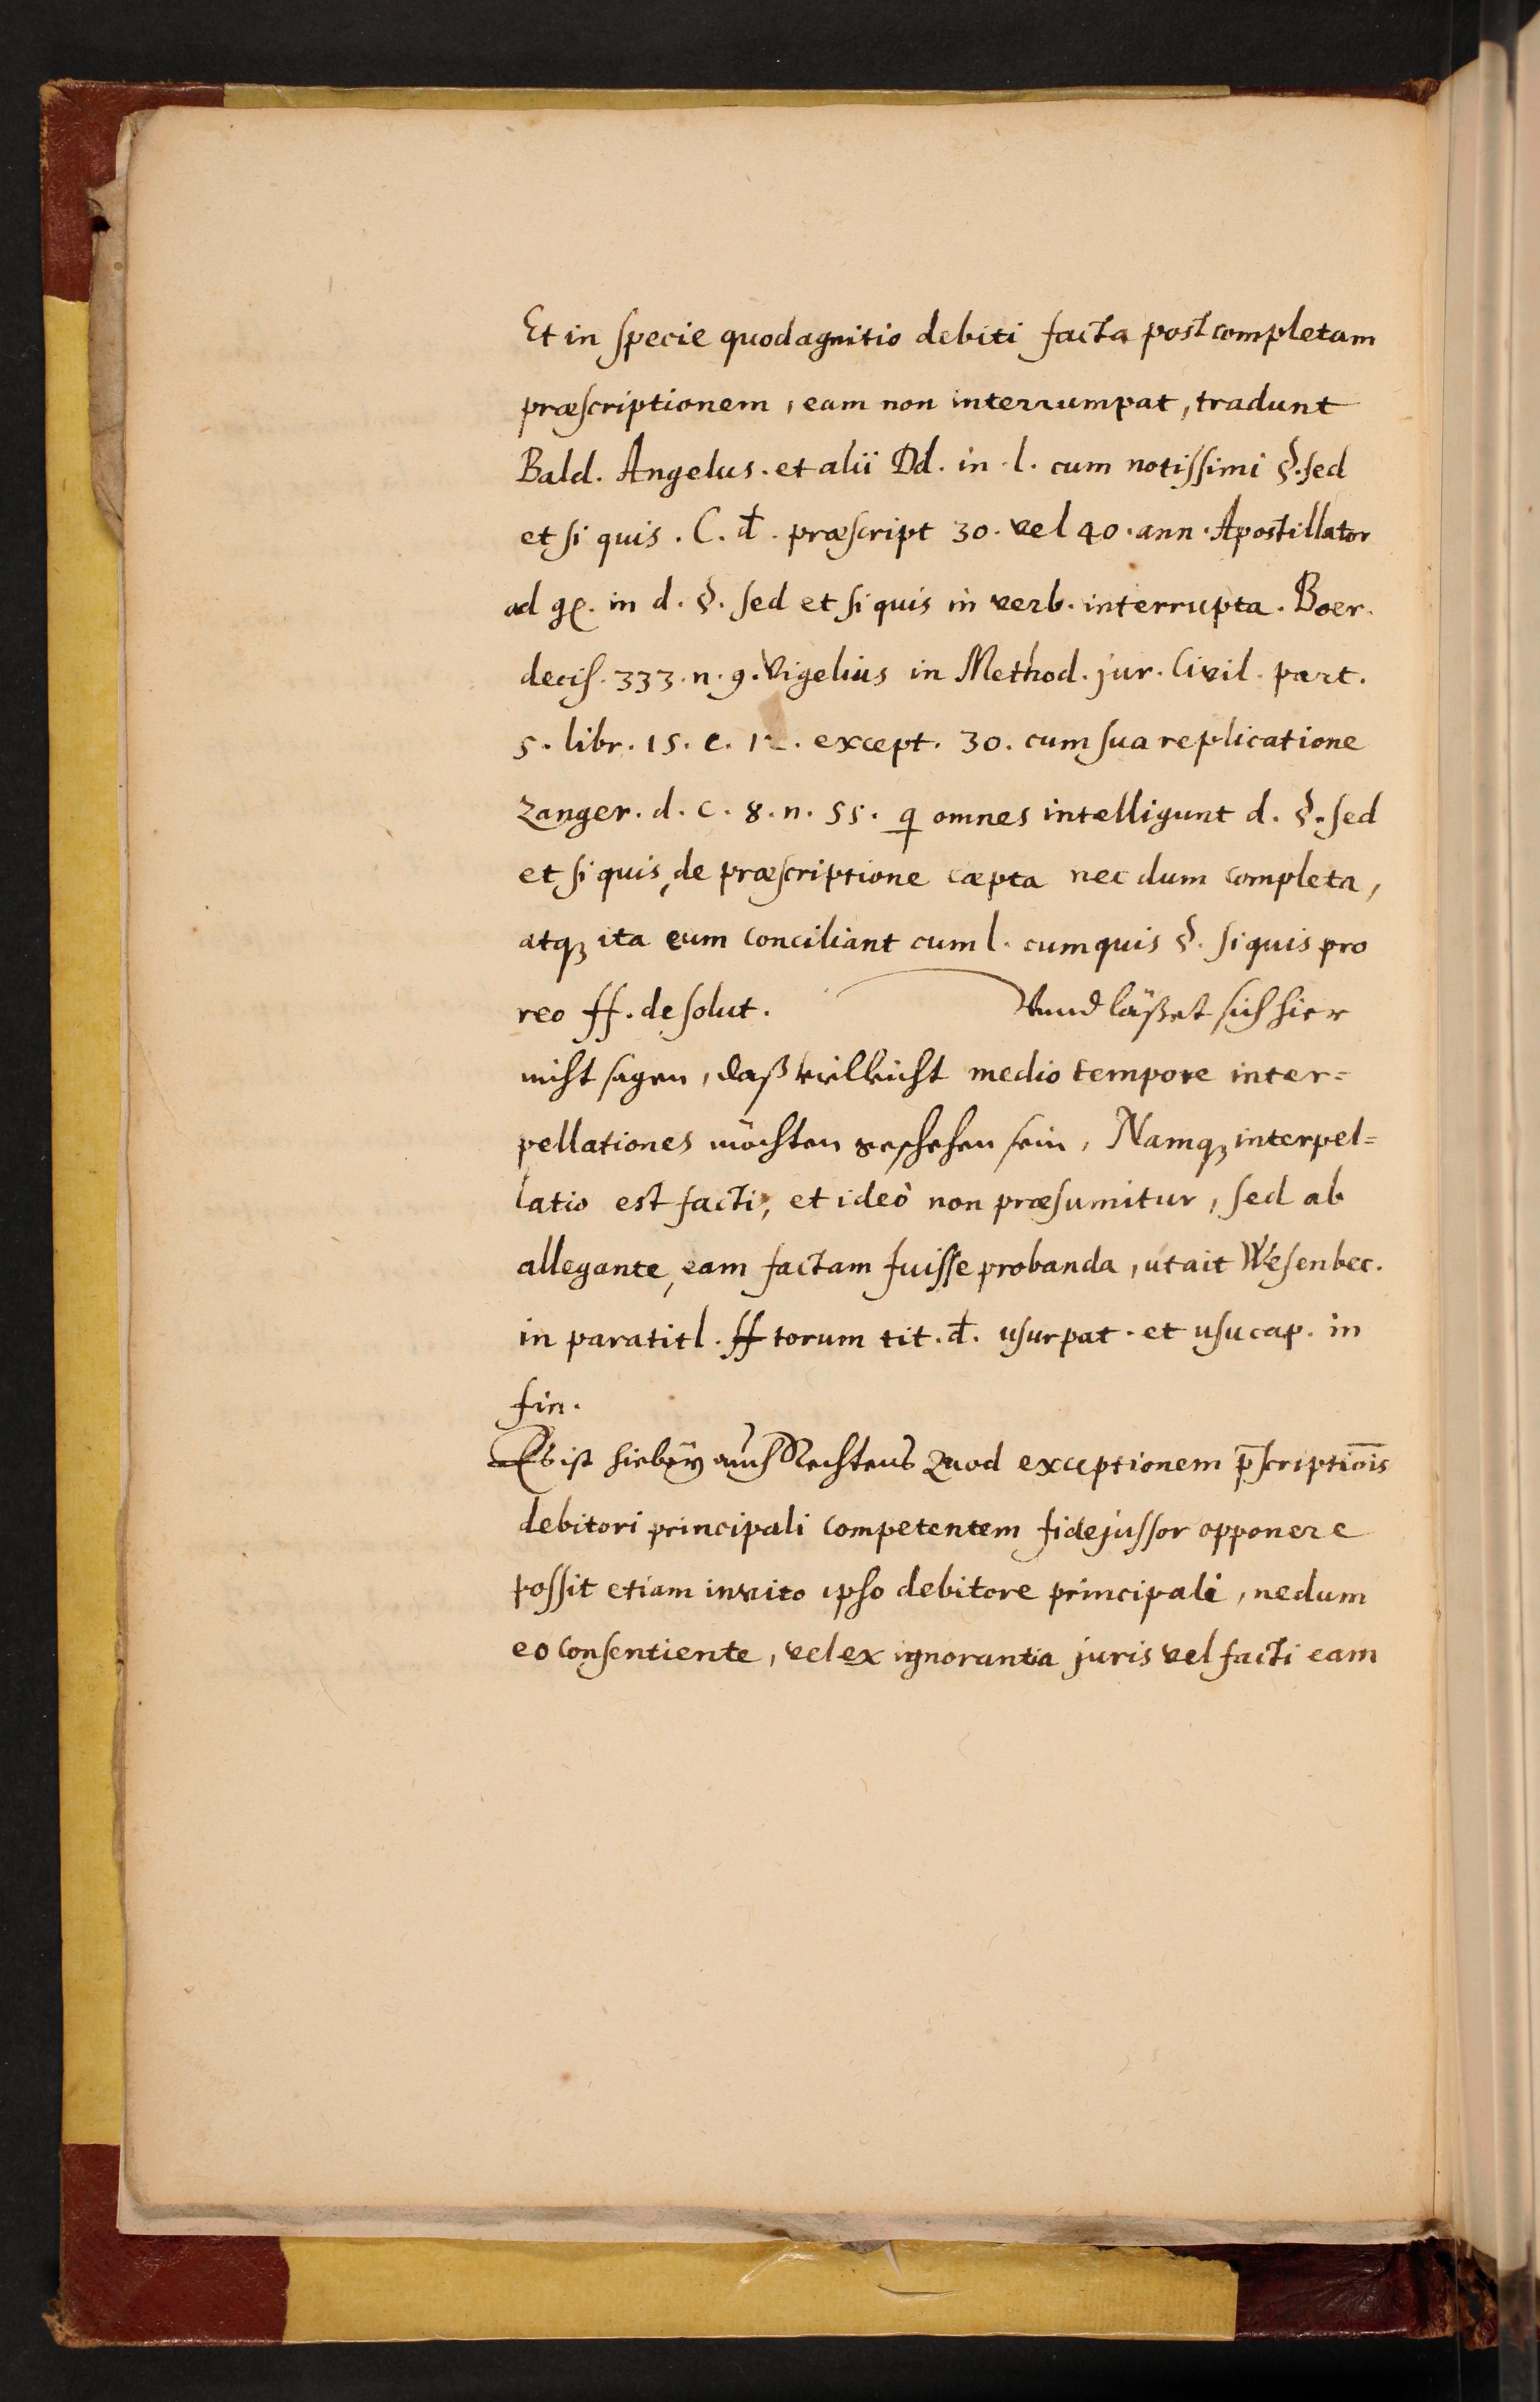 Et in ſpecie quod agnitio debiti facta post completam
præſcriptionem, eam non interrumpat, tradunt
Bald. Angelus. et alii Dd. in l. cum notiſſimi §. ſed
et ſi quis. C. đ. præſcript 30. vel 40. ann. Apostillator
ad gl. in d. §. ſed et ſi quis in verb. interrupta. Boer.
deciſ. 333. n. 9. Vigelius in Method. jur. Civil. part.
5. libr. 15. c. except. 30. cum ſua replicatione
Zanger. d. c. 8. n. 55. q omnes intelligunt d. §. ſed
et ſi quis, de præſcriptione cæpta nec dum completa,
atqꝫ ita eum conciliant cum l. cum quis §. ſi quis pro
reo ff. de ſolut. Vnnd läßet ſich hier
nicht ſagen, daß vielleicht medio tempore inter=
pellationes möchten geſchehen ſein, Namqꝫ interpel=
latio est facti, et ideò non præſumitur, ſed ab
allegante, eam factam fuiſſe probanda, ut ait Weſenbec.
in paratitl. ff torum tit. đ. uſurpat. et uſucap. in
fin.
Es iſt hiebey auch Rechtens Quod exceptionem p̄ſcriptiōis
debitori principali competentem fidejuſſor opponere
poſſit etiam invito ipſo debitore principali, nedum
eo conſentiente, vel ex ignorantia juris vel facti eam